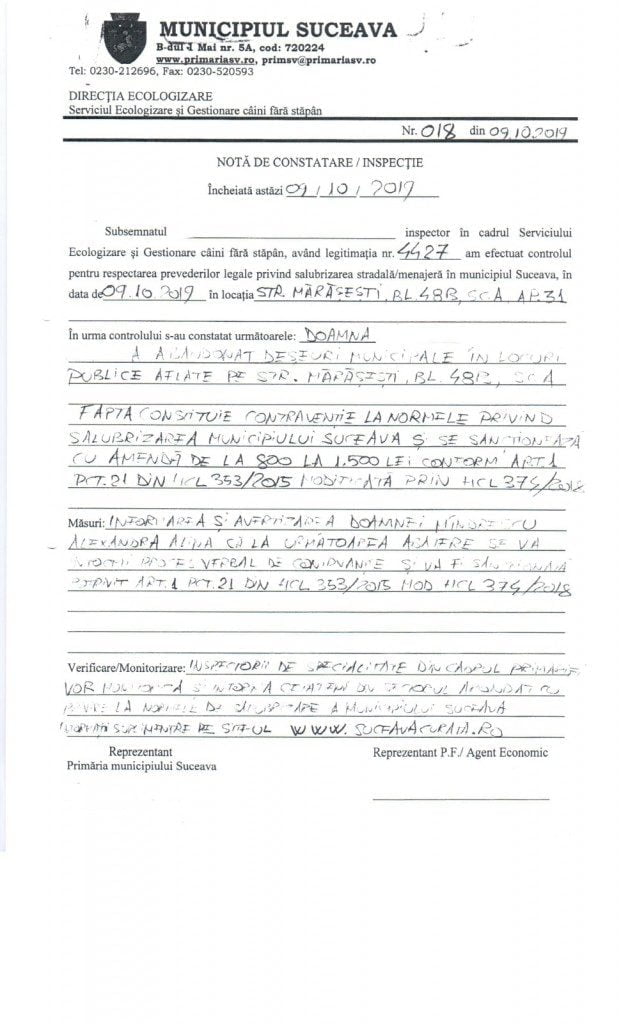 MUNICIPIUL SUCEAVA
B-dul 1 Mai nr. 5A, cod: 720224
www.primariasv.ro, primsv@primariasv.ro
Tel: 0230-212696, Fax: 0230-520593
DIRECȚIA ECOLOGIZARE
Serviciul Ecologizare și Gestionare câini fără stăpân
Nr. 018 din 09.10.2019
NOTĂ DE CONSTATARE / INSPECȚIE
Încheiată astăzi 09/10/2019
Subsemnatul inspector în cadrul Serviciului
Ecologizare și Gestionare câini fără stăpân, având legitimația nr. 4427 am efectuat controlul
pentru respectarea prevederilor legale privind salubrizarea stradală/menajeră în municipiul Suceava, în
data de 09.10.2019 în locația STR. MĂRĂȘEȘTI, BL. 48B, SC.A, AP.31
În urma controlului s-au constatat următoarele: DOAMNA
A ABANDONAT DEȘEURI MUNICIPALE ÎN LOCURI
PUBLICE AFLATE PE STR. MĂRĂȘEȘTI, BL. 48B, SC A
FAPTA CONSTITUIE CONTRAVENȚIE LA NORMELE PRIVIND
SALUBRIZAREA MUNICIPIULUI SUCEAVA ȘI SE SANCȚIONEAZĂ
CU AMENDĂ DE LA 800 LA 1.500 LEI CONFORM ART.1
PCT.21 DIN HCL 353/2015 MODIFICATĂ PRIN HCL 374/2018
Măsuri: INFORMAREA ȘI AVERTIZAREA DOAMNEI
ALEXANDRA ALINA CĂ LA URMĂTOAREA ABATERE SE VA
PROCES VERBAL DE ȘI VA FI SANCȚIONATĂ
POTRIVIT ART.1 PCT.21 DIN HCL 353/2015 MOD HCL 374/2018
Verificare/Monitorizare: INSPECTORII DE SPECIALITATE DIN CADRUL PRIMĂRIEI
VOR ȘI INFORMA CETĂȚENI DIN SECTORUL CU
LA NORMELE DE SALUBRIZARE A MUNICIPIULUI SUCEAVA
SUPLIMENTARE PE SITE-UL WWW.SUCEAVACURATA.RO
Reprezentant Reprezentant P.F./ Agent Economic
Primăria municipiului Suceava